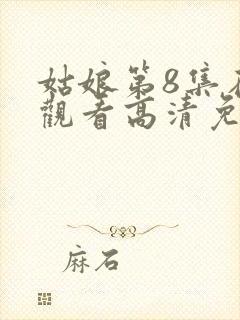 姑娘第8集在
觀看高清免
麻石